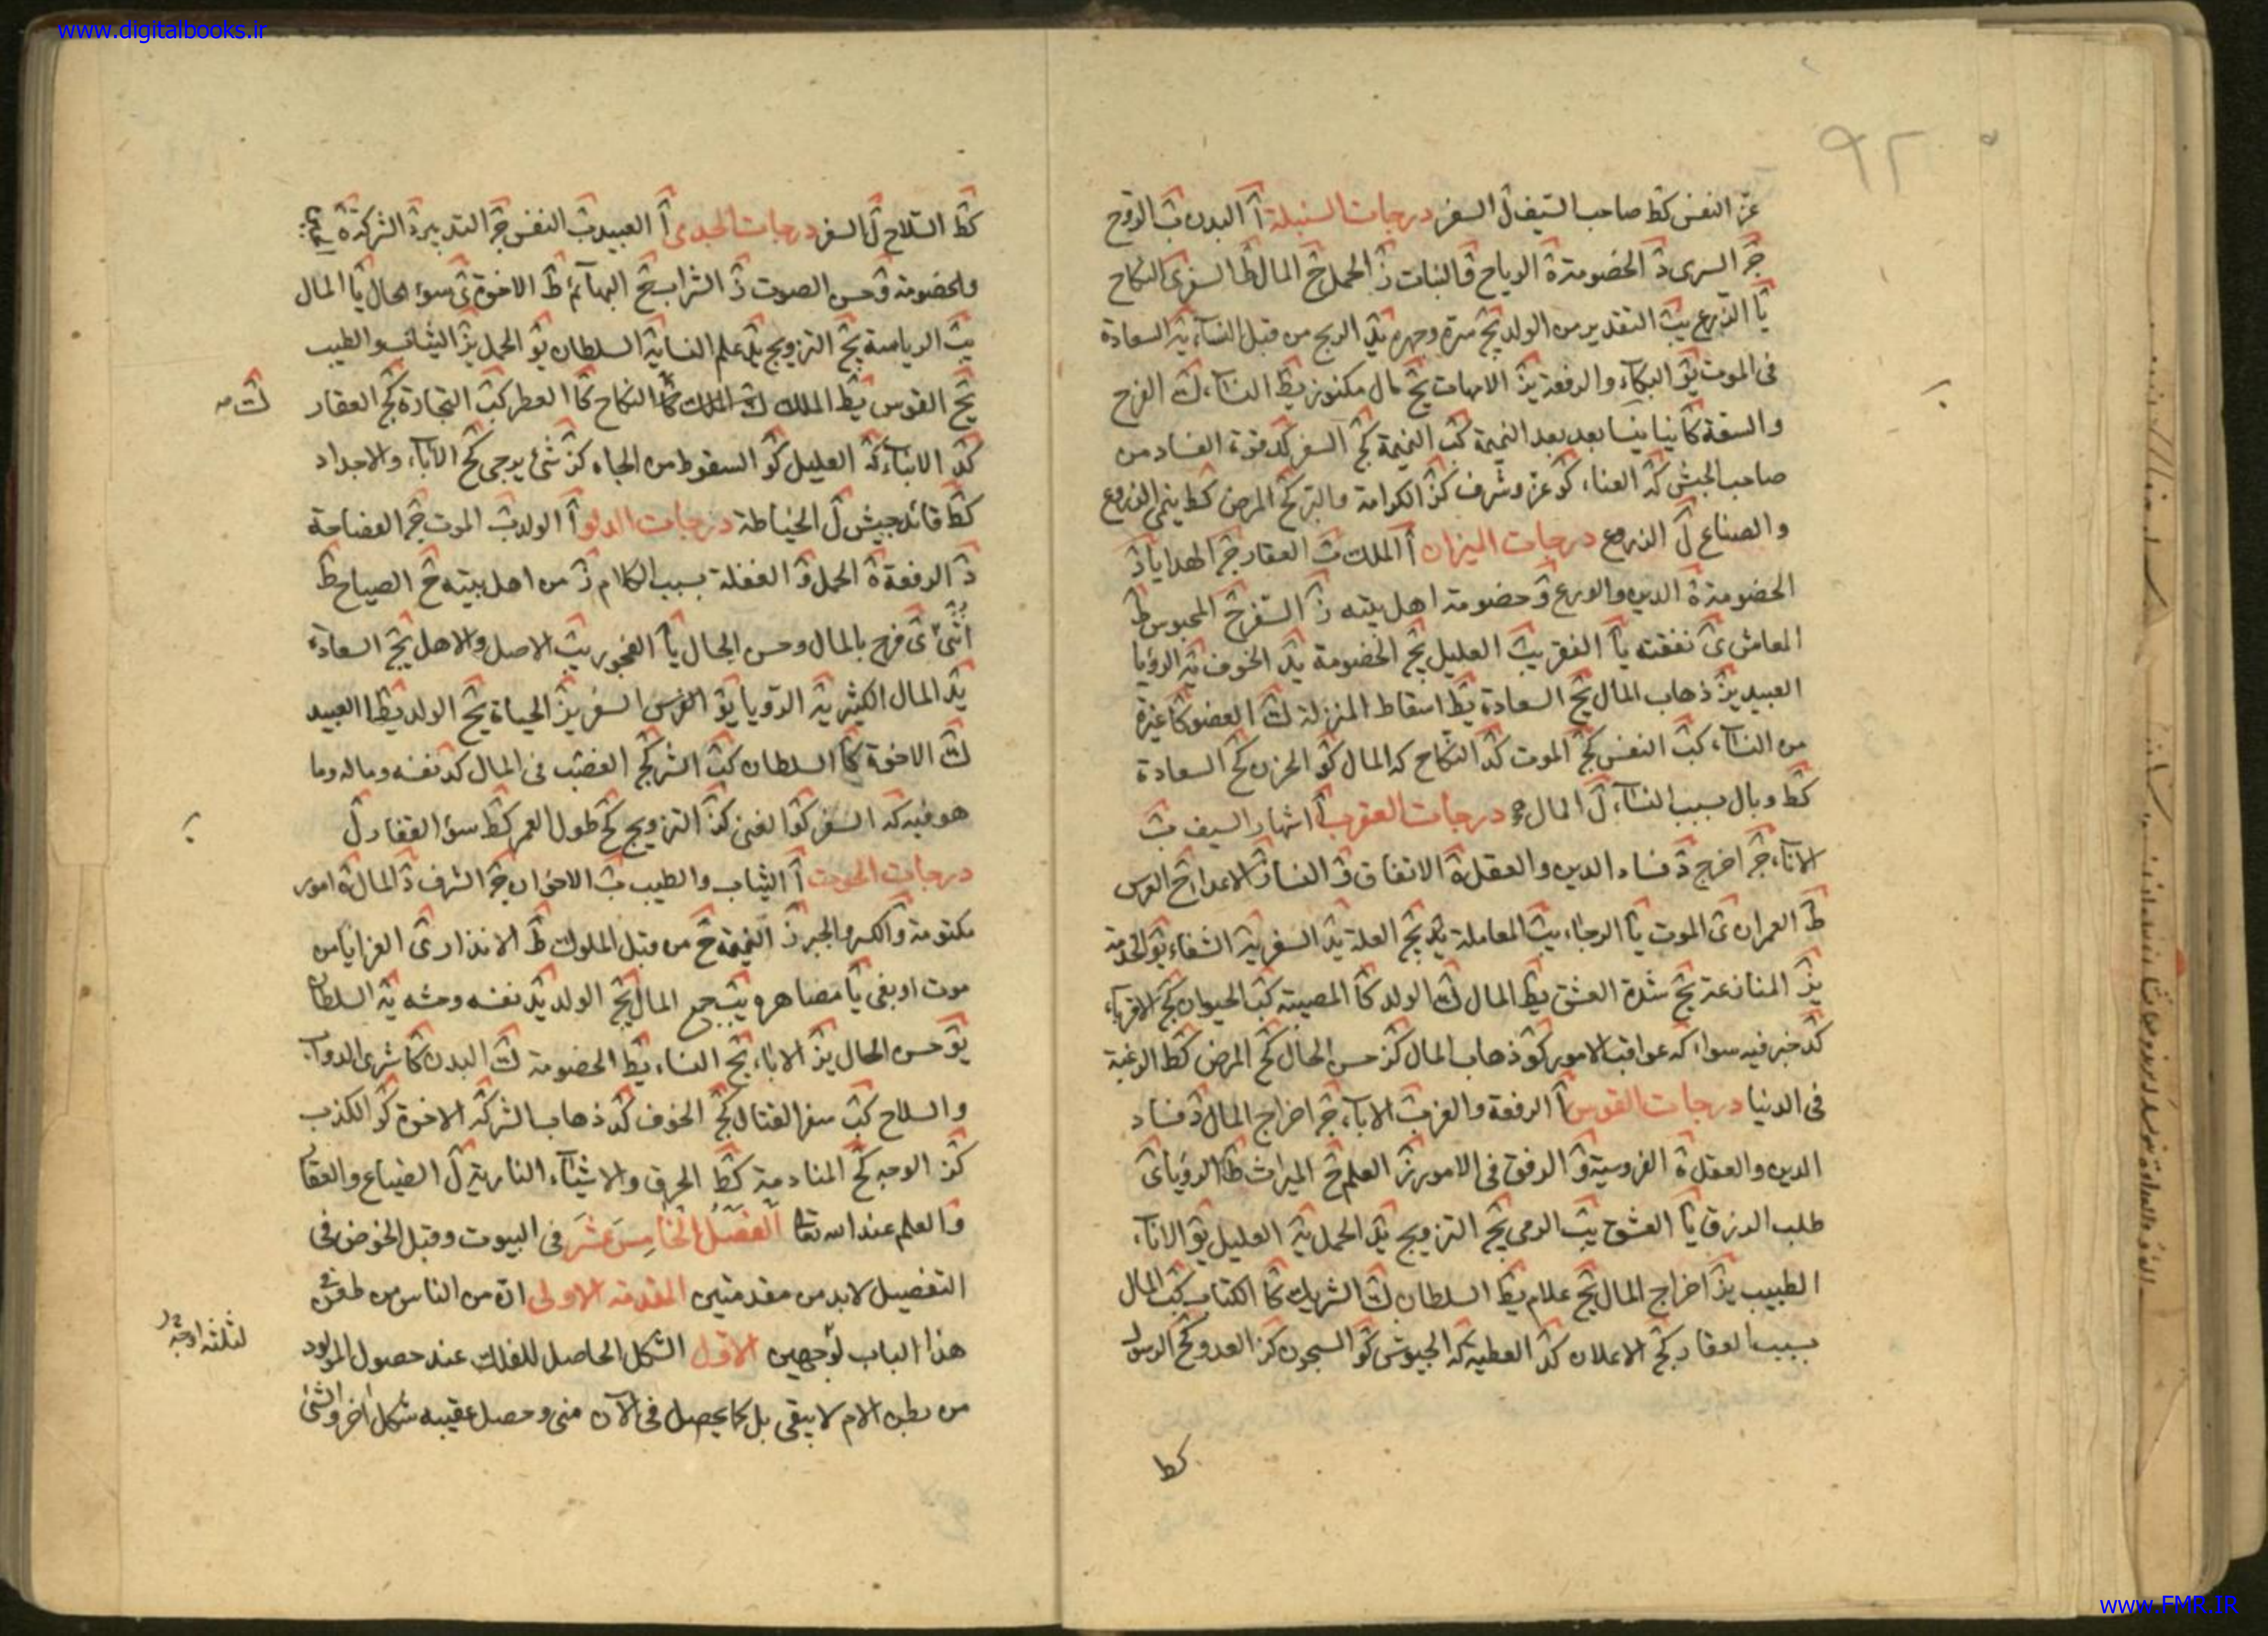 www.digitalbooks.ir
٩٢
عز النفس كط صاحب السيف ل السفر درجات السنبلة آ البدن ب الروح
ج السرى د الخصومة ه الرياح و النبات ز الحمل ح المال ط السفر ى النكاح
يا الزرع يب التقدير من الولد يج يد الربح من قبل النساء يه السعادة
فى الموت يو البكاء والرفعة يز الامهات يح مال مكنوز يط النساء ك الفرح
والسعة كا بعد النميمة كب النميمة كج السفر كد قوة الفساد من
صاحب الجيش كه الغناء كو عز وشرف كز الكرامة والبر كح المرض كط الفروع
والصناع ل الزروع درجات الميزان آ الملك ب العقار ج الهدايا د
الخصومة ه الدين والورع و خصومة اهل بيته ز السفر ح المحبوس ط
المعاش ى نفقته يا الفقر يب العليل يج الخصومة يد الخوف يه الرؤيا
العبيد يز ذهاب المال يح السعادة يط اسقاط المنزلة ك العضو كا
من النساء كب النفس كج الموت كد النكاح كه المال كو الحزن كح السعادة
كط وبال بسبب النساء ل المال درجات العقرب آ اشهار السيف ب
الاباء ج اخرج د فساد الدين والعقل ه الاتفاق و النساء ز الاعداء ح العرس
ط العمران ى الموت يا الرجاء يب المعاملة يج العلة يد السفر يه الشفاء يو الخدمة
يز المنازعة يح شدة العشق يط المال ك الولد كا المصيبة كب الحيوان كج الاقرباء
كد خبر فيه سواء كه عواقب الامور كو ذهاب المال كز حسن الحال كح المرض كط الرغبة
فى الدنيا درجات القوس آ الرفعة والعز ب الاباء ج اخراج المال د فساد
الدين والعقل ه الفروسية و الرفق فى الامور ز العلم ح الميراث ط الرؤيا ى
طلب الرزق يا العشق يب الرمى يج التزويج يد الحمل يه العليل يو الاباء
الطبيب يز اخراج المال يح علام يط السلطان ك الشريك كا الكتاب كب المال
بسبب العقار كج الاعلان كد العطية كه الجيوش كو السجون كز العدو كح الرسول
كط
كط السلاح ل السفر درجات الجدى آ العبيد ب النفس ج التدبير د الشركة ه
والخصومة و حسن الصوت ز الشراب ح البهائم ط الاخوة ى سوء الحال يا المال
يب الرياسة يج التزويج يد علم الغناء يه السلطان يو الحمل يز الثياب والطيب
يح القوس يط الملك ك الملك كا النكاح كا العطر كب التجارة كج العقار
كد الابناء كه العليل كو السقوط من الجاه كز شئ يرجى كح الاباء والاجداد
كط قائد جيش ل الخياطة درجات الدلو آ الولد ب الموت ج الفضاحة
د الرفعة ه الحمل و الغفلة بسبب الكلام ز من اهل بيته ح الصياح ط
انثى ى فرح بالمال وحسن الحال يا الفجور يب الاصل والاهل يج السعادة
يد المال الكثير يه الرؤيا يو الفرس السفر يز الحياة يح الولد يط العبيد
ك الاخوة كا السلطان كب الشر كج الغضب فى المال كد نفسه وماله وما
هو فيه كه السفر كو الغنى كز التزويج كح طول العمر كط سوء العقار ل
درجات الحوت آ الثياب والطيب ب الاخوان ج الشرف د المال ه امور
مكتومة و الكسر والجبر ز النميمة ح من قبل الملوك ط الانذار ى العزايا من
موت او بغى يا مصاهره يب جمع المال يج الولد يد نفسه وحشه يه السلطان
يو حسن الحال يز الاباء يح النساء يط الخصومة ك البدن كا شرى الدواب
والسلاح كب سفر القتال كج الخوف كد ذهاب الشر كه الاخوة كو الكذب
كز الوجه كح المنادمة كط الحرق والاشياء النارية ل الضياع والعقار
والعلم عند الله تعالى الفصل الخامس عشر فى البيوت وقبل الخوض فى
التفصيل لابد من مقدمتين المقدمة الاولى ان من الناس من طعن فى
هذا الباب لوجهين الاول الشكل الحاصل للفلك عند حصول المولود
من بطن الام لا يبقى بل كما يحصل فى الآن فنى وحصل عقيبه شكل آخر والشئ
لثلثة اوجه
www.FMR.IR